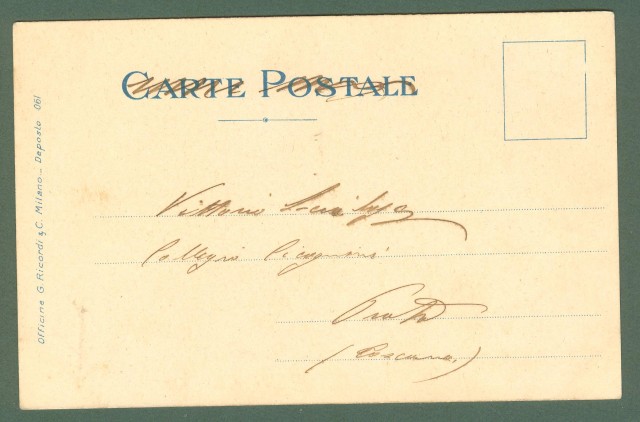 CARTE POSTALE
Vittorio
Collegio Cicognini
Prato
(Toscana)
Officine G. Ricordi & C. Milano - Deposto 061